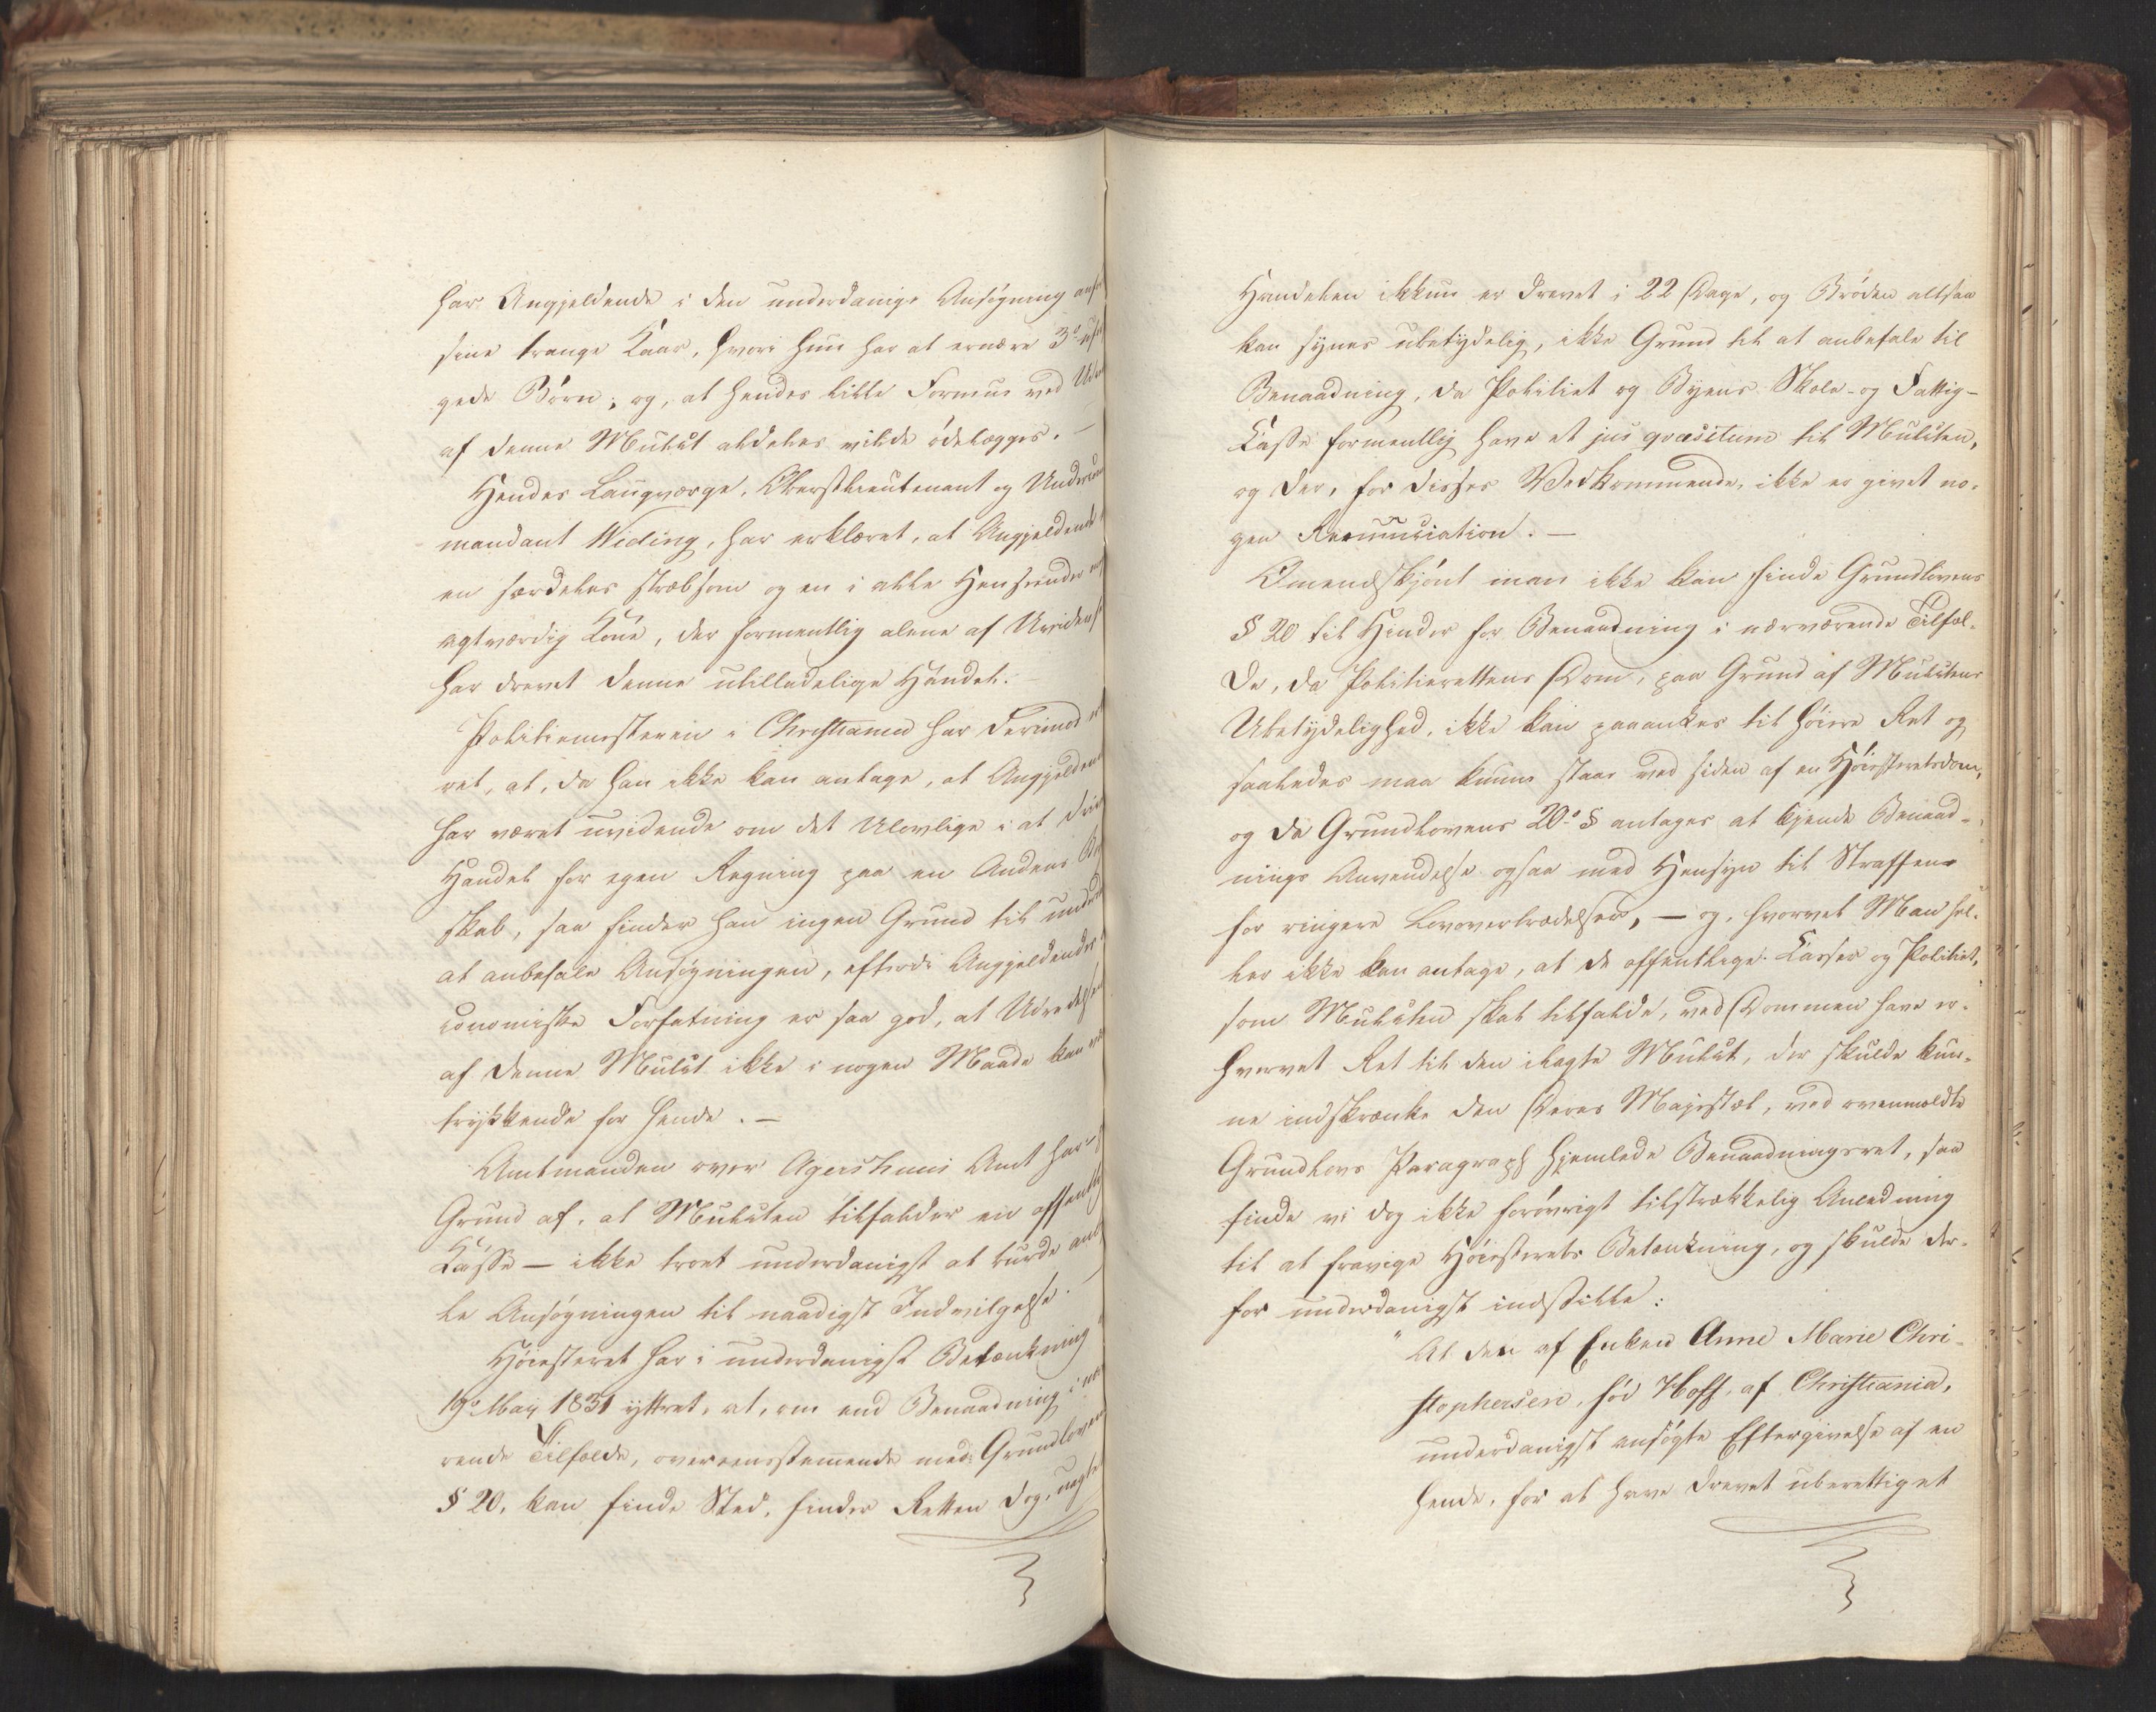 har Angjeldende i den underdanige Ansøgning anfø
sine trange Kaar, hvori hun har at ernære 3de ufor
gede Børn; og, at hendes lille Formue ved Udre
af denne Mulct aldeles vilde ødelægges. —
Hendes Laugværge, Oberstlieutenant og Undercom
mandant Widing, har erklæret, at Angjeldende
en særdeles stræbsom og en i alle Henseender
agtværdig Kone, der formentlig alene af Uvidenh
har drevet denne utilladelige Handel. —
Politiemesteren i Christiania har derimod
ret, at, da han ikke kan antage, at Angjelden
har været uvidende om det Ulovlige i at driv
Handel for egen Regning paa en Andens Bor
skab, saa finder han ingen Grund til underd
at anbefale Ansøgningen, efterdi Angjeldendes
conomiske Forfatning er saa god, at Udredelsen
af denne Mulct ikke i nogen Maade kan
trykkende for hende. —
Amtmanden over Agershuus Amt har
Grund af, at Mulcten tilfalder en offentlig
Kasse — ikke troet underdanigst at turde anb
le Ansøgningen til naadigst Indvilgelse. —
Høiesteret har i underdanigst Betænkning
19de May 1831 yttret, at, om end Benaadning i nær
rende Tilfælde, overeensstemmende med Grundloven
§ 20, kan finde Sted, finder Retten dog, uagte
Handelen ikkun er drevet i 22 Dage, og Brøden altsaa
kan synes ubetydelig, ikke Grund til at anbefale til
Benaadning, da Politiet og Byens Skole- og Fattig-
Kasse formentlig have et jus qvæsitum til Mulcten,
og der, for disses Vedkommende, ikke er givet no-
gen Renunciation. —
Omendskjønt man ikke kan finde Grundlovens
§ 20 til Hinder for Benaadning i nærværende Tilfæl-
de, da Politierettens Dom, paa Grund af Mulctens
Ubetydelighed, ikke kan paaankes til høiere Ret og
saaledes maa kunne staae ved siden af en Høiesteretsdom,
og da Grundlovens 20de § antages at hjemle Benaad-
nings Anvendelse ogsaa med Hensyn til Straffen
for ringere Lovovertrædelser, — og, hvorvel Man hel-
ler ikke kan antage, at de offentlige Kasser og Politiet,
som Mulcten skal tilfalde, ved Dommen have er-
hvervet Ret til den ilagte Mulct, der skulde kun-
ne indskrænke den Deres Majestæt, ved ovenmeldte
Grundlovs Paragraph hjemlede Benaadningsret, saa
finde vi dog ikke forøvrigt tilstrækkelig Anledning
til at fravige Høiesterets Betænkning, og skulde der-
for underdanigst indstille:
"At den af Enken Anne Marie Chri-
stophersen, fød Hoff, af Christiania,
underdanigst ansøgte Eftergivelse af en
hende, for at have drevet uberettiget